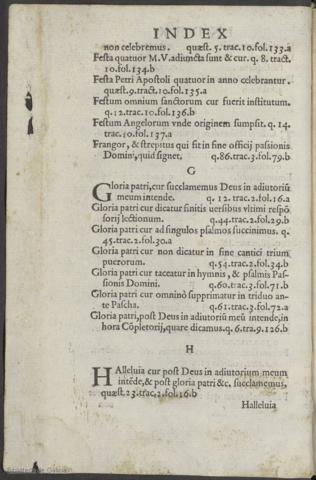 INDEX
non celebremus. quæst. 5. trac.10.fol.133.a
Festa quatuor M.V.adiuncta sunt & cur. q. 8. tract.
10.fol.134.b
Festa Petri Apostoli quatuor in anno celebrantur.
quæst.9.tract.10.fol.135.a
Festum omnium sanctorum cur fuerit institutum.
q.12.trac.10.fol.136.b
Festum Angelorum vnde originem sumpsit. q. 14.
trac.10.fol.137.a
Frangor, & strepitus qui fit in fine officij passionis
Domin', quid signet. q.86.trac.3.fol.79.b
G
Gloria patri, cur succlamemus Deus in adiutoriũ
meum intende. q. 12. trac.2.fol.16.a
Gloria patri cur dicatur finitis uersibus vltimi respõ
sorij lectionum. q.44.trac.2.fol.29.b
Gloria patri cur ad singulos psalmos succinimus. q.
45.trac.2.fol.30.a
Gloria patri cur non dicatur in fine cantici trium
puerorum. q.54.trac.2.fol.34.b
Gloria patri cur taceatur in hymnis, & psalmis Pas-
sionis Domini. q.60.trac.3.fol.71.b
Gloria patri cur omninò supprimatur in triduo an-
te Pascha. q.61.trac.3.fol.72.a
Gloria patri, post Deus in adiutoriũ meũ intende, in
hora Cõpletorij, quare dicamus.q.6.tra.9.126.b
H
HAlleluia cur post Deus in adiutorium meum
intẽde, & post gloria patri &c. succlamemus,
quæst.23.trac,2.fol.16.b
Halleluia